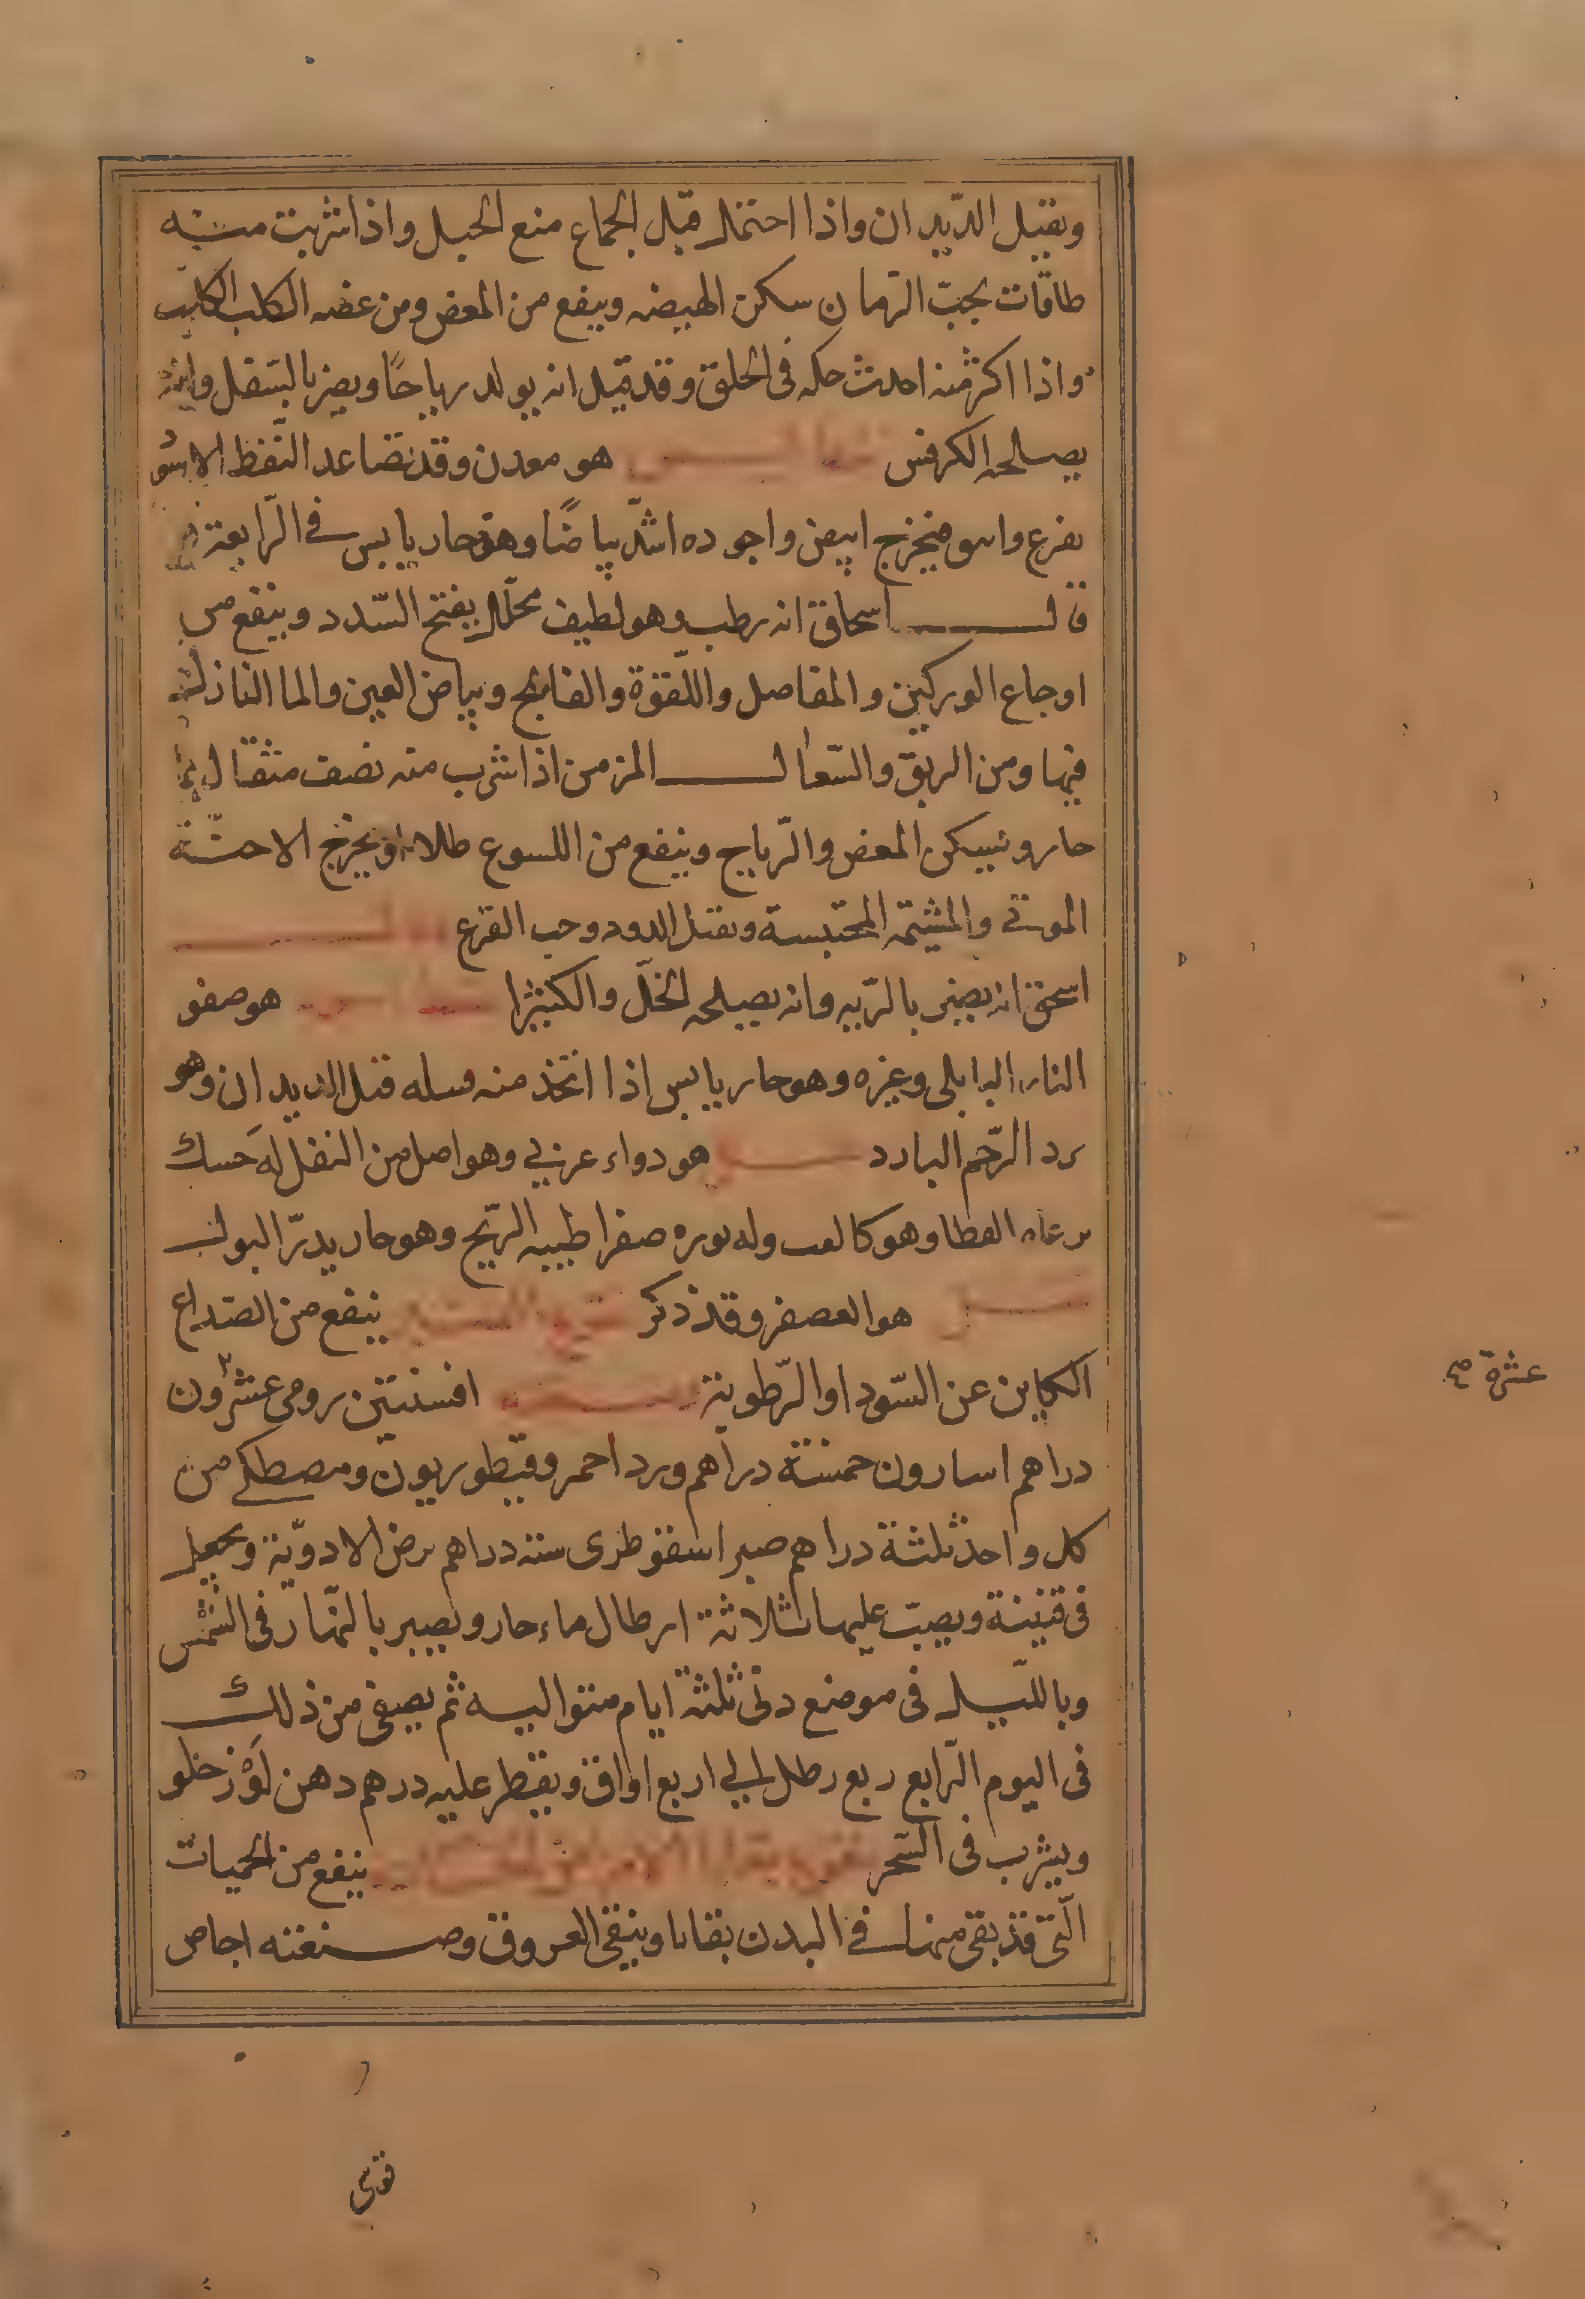 ويقتل الديدان واذا احتمل قبل الجماع منع الحبل واذا شربت منه
طاقات بحب الرمان سكن الهيضه وينفع من المغص ومن عضه الكلب الكلب
واذا اكثر منه احدث حكه في الحلق وقد قيل انه يولد رياحًا ويضر بالسفل وانه
يصلحه الكرفس هو معدن وقد تصاعد النفط الاسود
بقرع وانبيق فيخرج ابيض واجوده اشدّ بياضًا وهو حار يابس في الرّابعة
قال اسحاق انه رطب وهو لطيف محلّل يفتح السّدد وينفع من
اوجاع الوركين والمفاصل واللّقوة والفالج وبياض العين والما النازل
فيها ومن الربو والسّعال المزمن اذا شرب منه نصف مثقال بما
حار ويسكن المغص والرّياح وينفع من اللسوع طلاء ويخرج الاجنّة
الموتى والمشيمه المحتبسة ويقتل الدود وحب القرع
اسحق انه يضر بالريه وانه يصلحه الخلّ والكثيرا هو صفو
النار البابلي وغيره وهو حار يابس اذا اتخذ منه فتيله قتل الديدان وهو
برد الرّحم البارد هو دواء عربي وهو اصل من النفل له حَسك
يرعاه القطا وهو كالقت وله نوره صفرا طيبه الريح وهو حار يدرّ البول
هو العصفر وقد ذكر ينفع من الصّداع
الكاين عن السّودا والرّطوبة افسنتين رومى عشرون
دراهم اسارون خمسة دراهم ورد احمر وقنطوريون ومصطكى من
كل واحد ثلثة دراهم صبر اسقوطرى ستة دراهم يرض الادوية ويجعل
في قنينة ويصبّ عليها ثلاثة ارطال ماء حار ويصير بالنّهار في الشّمس
وباللّيل في موضع دفى ثلثة ايام متواليه ثم يصفى من ذلك
في اليوم الرّابع ربع رطل الى اربع اواق ويقطر عليه درهم دهن لَوْز حلو
ويشرب في السّحر ينفع من الحميات
الّتى قد بقى منها في البدن بقايا وينقى العروق وصنعته اجاص
عشرة